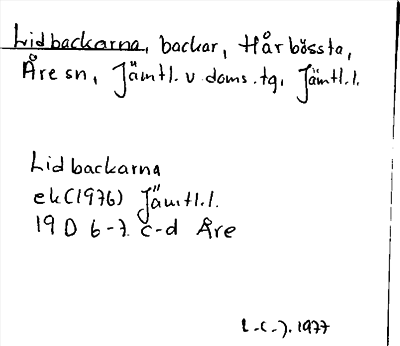 Lidbackarna, backar, Hårbössta,
Åre sn, Jämtl. v doms. tg, Jämtl.l.
Lidbackarna
ek (1976) Jämtl.l.
19 D 6-7 c-d Åre
L-C-J. 1977